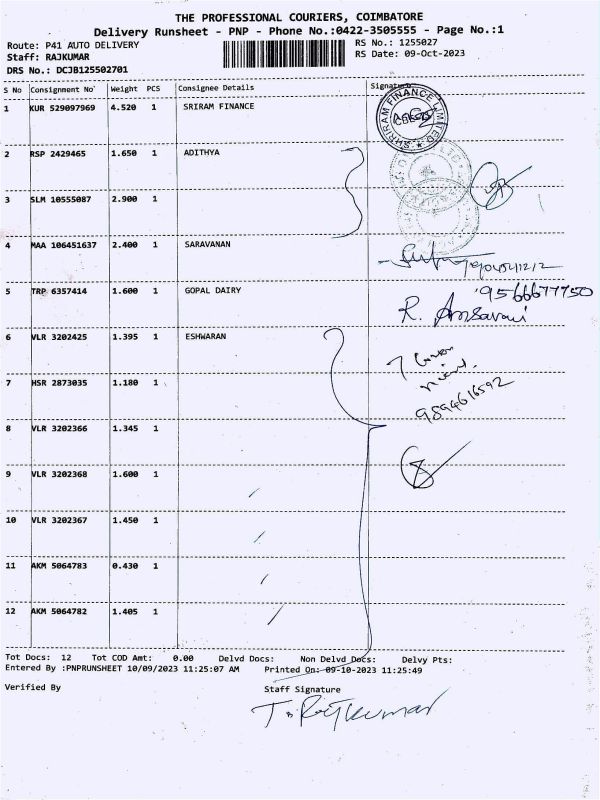 THE PROFESSIONAL COURIERS, COIMBATORE
Delivery Runsheet - PNP - Phone No.:0422-3505555 - Page No.:1
Route: P41 AUTO DELIVERY RS No.: 1255027
Staff: RAJKUMAR RS Date: 09-Oct-2023
DRS No.: DCJB125502701
S No Consignment No Weight PCS Consignee Details Signature
1 KUR 529097969 4.520 1 SRIRAM FINANCE
SHRIRAM FINANCE LIMITED
2 RSP 2429465 1.650 1 ADITHYA
3 SLM 10555087 2.900 1
4 MAA 106451637 2.400 1 SARAVANAN
5 TRP 6357414 1.600 1 GOPAL DAIRY
9566677750
R. Ansavani
6 VLR 3202425 1.395 1 ESHWARAN
7 HSR 2873035 1.180 1
9894616592
8 VLR 3202366 1.345 1
9 VLR 3202368 1.600 1
10 VLR 3202367 1.450 1
11 AKM 5064783 0.430 1
12 AKM 5064782 1.405 1
Tot Docs: 12 Tot COD Amt: 0.00 Delvd Docs: Non Delvd Docs: Delvy Pts:
Entered By :PNPRUNSHEET 10/09/2023 11:25:07 AM Printed On: 09-10-2023 11:25:49
Verified By Staff Signature
T. Rajkumar